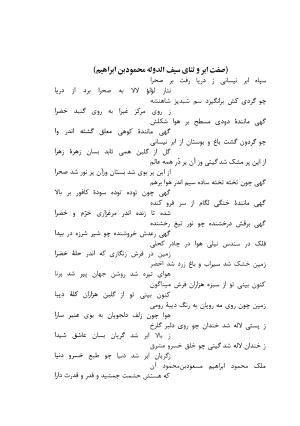 (صفت ابر و ثنای سیف الدوله محمودبن ابراهیم)
سپاه ابر نیسانی ز دریا رفت بر صحرا
نثار لؤلؤ لالا به صحرا برد از دریا
چو گردی کش برانگیزد سم شبدیز شاهنشه
ز روی مرکز غبرا به روی گنبد خضرا
گهی مانندهٔ دودی مسطح بر هوا شکلش
گهی مانندهٔ کوهی معلق گشته اندر وا
چو گردون گشت باغ و بوستان از ابر نیسانی
گل از گلبن همی تابد بسان زهرهٔ زهرا
از این پر مشک شد گیتی وز آن بر در همه عالم
از این پر بوی شد بستان ورآن پر نور شد صحرا
گهی چون تخته تخته ساده سیم اندر هوا برهم
گهی چون توده توده سودهٔ کافور بر بالا
گهی مانندهٔ خنگی لگام از سر فرو کنده
شده تا زنده اندر مرغزاری خرّم و خضرا
گهی برقش درخشنده چو نور تیغ رخشنده
گهی رعدش خروشنده چو شیر شرزه در بیدا
فلک در سندس نیلی هوا در چادر کحلی
زمین در فرش زنگاری که اندر حلهٔ خضرا
زمین خشک شد سیراب و باغ زرد شد اخضر
هوای تیره شد روشن جهان پیر شد برنا
کنون بینی تو از سبزه هزاران فرش میناگون
کنون بینی تو از گلبن هزاران کلهٔ دیبا
زمین چون روی مه رویان به رنگ دیبهٔ رومی
هوا چون زلف دلجویان به بوی عنبر سارا
ز پستی لاله شد خندان چو روی دلبر گلرخ
ز بالا ابر شد گریان بسان عاشق شیدا
ز خندان لاله شد گیتی چو خلق خسرو مشرق
زگریان ابر شد دنیا چو طبع خسرو دنیا
ملک محمود ابراهیم مسعودبن‌محمود آن
که هستش حشمت جمشید و قدر و قدرت دارا